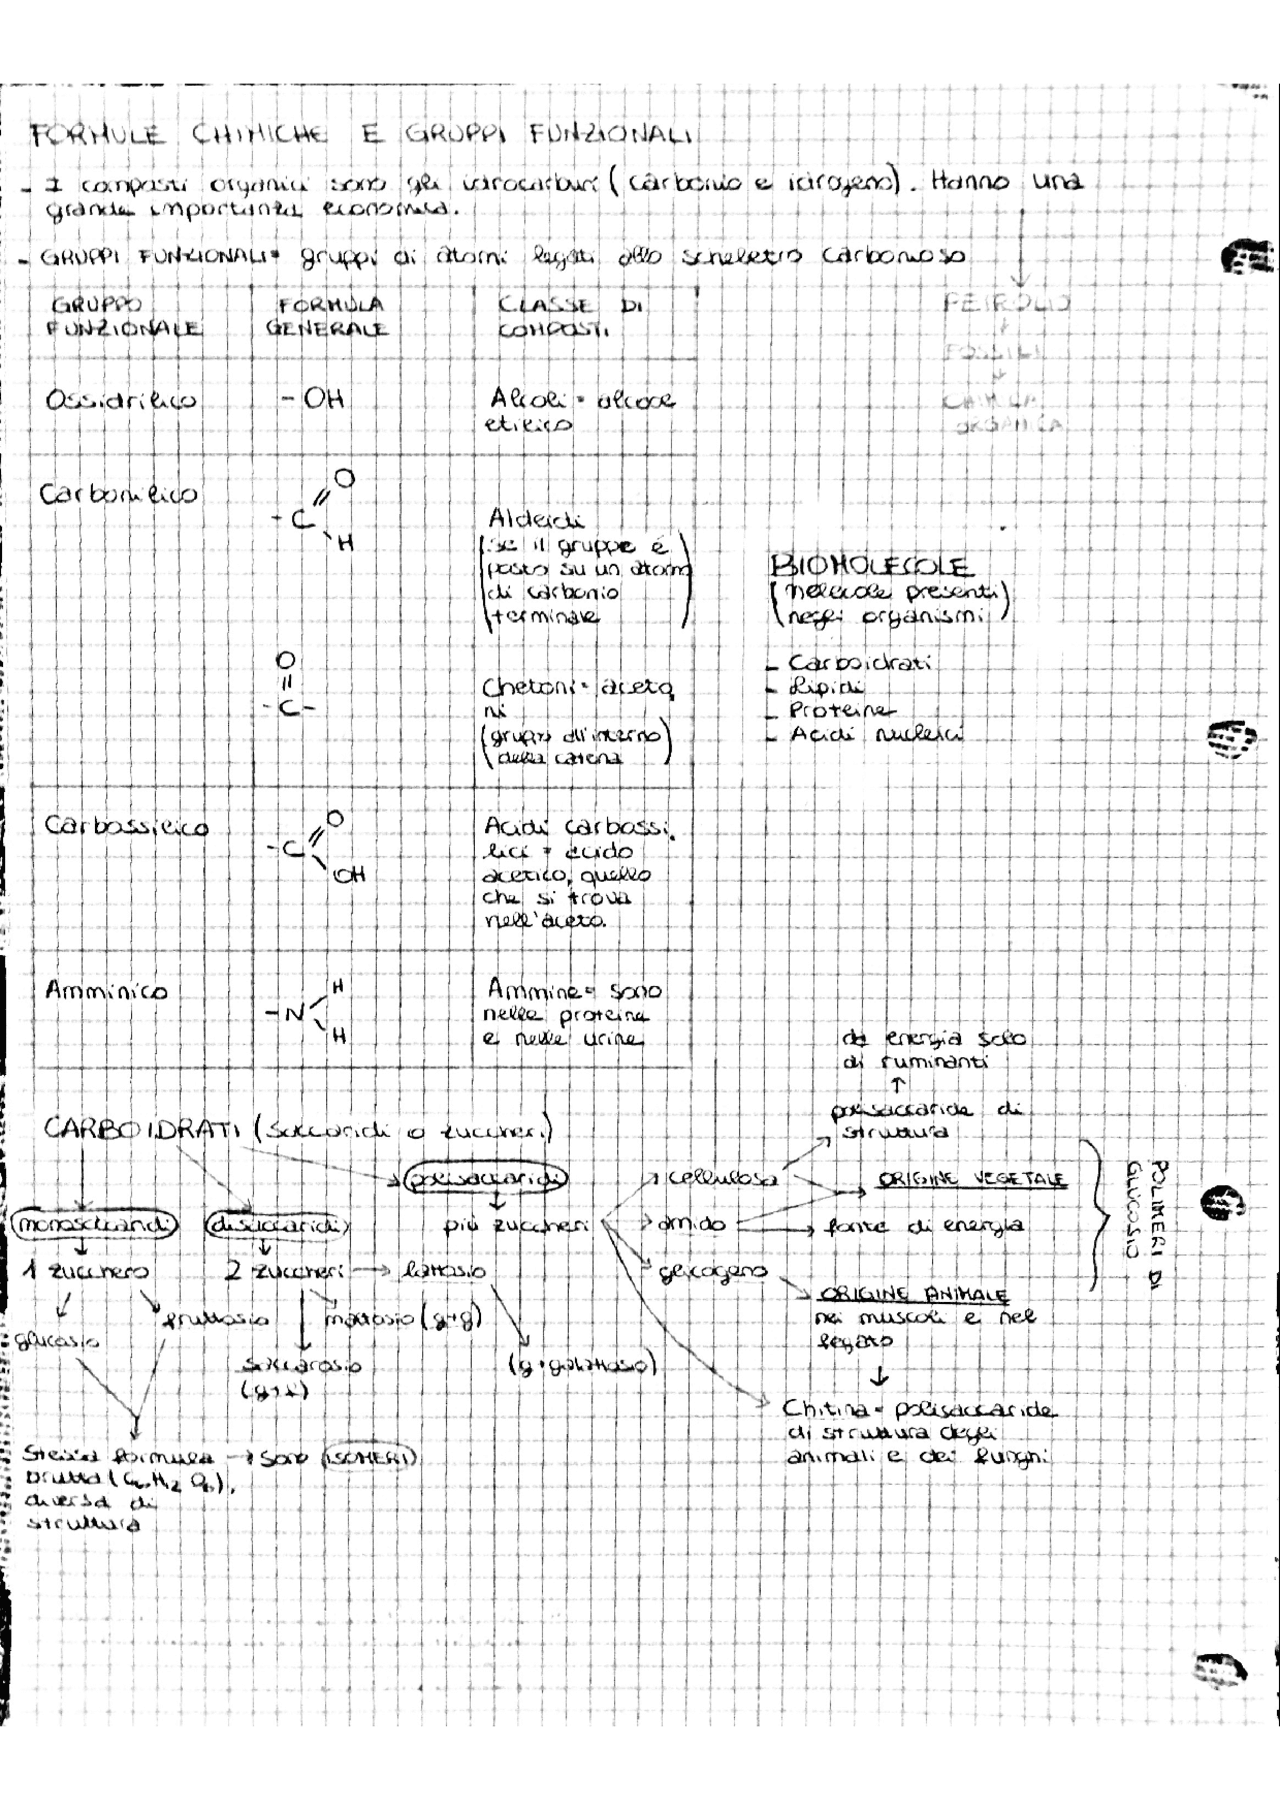 FORMULE CHIMICHE E GRUPPI FUNZIONALI
- I composti organici sono gli idrocarburi (carbonio e idrogeno). Hanno una
grande importanza economica.
- GRUPPI FUNZIONALI= gruppi di atomi legati allo scheletro carbonioso
PETROLIO
FOSSILI
CHIMICA
ORGANICA
GRUPPO FUNZIONALE
FORMULA GENERALE
CLASSE DI COMPOSTI
Ossidrilico
- OH
Alcoli = alcool
etilico
Carbonilico
O
- C
H
Aldeidi
(se il gruppo è
posto su un atomo
di carbonio
terminale)
O
=
- C -
Chetoni = aceto
ni
(gruppo all'interno
della catena)
Carbossilico
O
- C
OH
Acidi carbossi.
lici = acido
acetico, quello
che si trova
nell'aceto.
Amminico
H
- N
H
Ammine = sono
nelle proteine
e nelle urine
BIOMOLECOLE
(molecole presenti
negli organismi)
- Carboidrati
- Lipidi
- Proteine
- Acidi nucleici
CARBOIDRATI (saccaridi o zuccheri)
monosaccaridi
1 zucchero
glucosio
fruttosio
Stessa formula
bruta (C6H12O6),
diversa di
struttura
→ sono ISOMERI
disaccaridi
2 zuccheri → lattosio
maltosio (g+g)
saccarosio
(g+f)
(g+galattosio)
polisaccaridi
più zuccheri
cellulosa
da energia solo
di ruminanti
↑
polisaccaride di
struttura
ORIGINE VEGETALE
amido
fonte di energia
glicogeno
ORIGINE ANIMALE
nei muscoli e nel
fegato
Chitina = polisaccaride
di struttura degli
animali e dei funghi
POLIMERI DI
GLUCOSIO